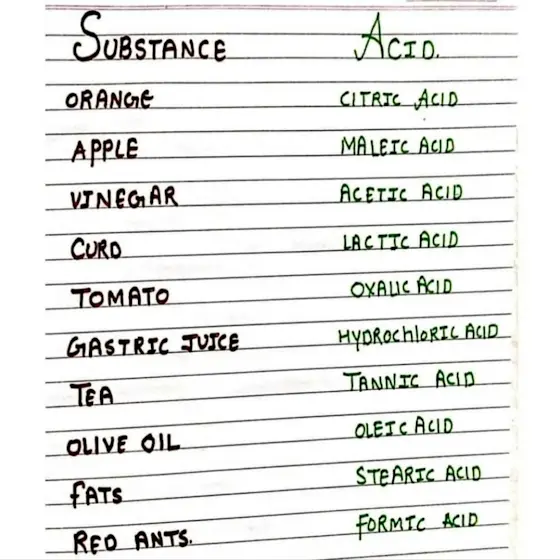 SUBSTANCE ACID.
ORANGE CITRIC ACID
APPLE MALEIC ACID
VINEGAR ACETIC ACID
CURD LACTIC ACID
TOMATO OXALIC ACID
GASTRIC JUICE HYDROChlORIC ACID
TEA TANNIC ACID
OLIVE OIL OLEIC ACID
FATS STEARIC ACID
RED ANTS. FORMIC ACID